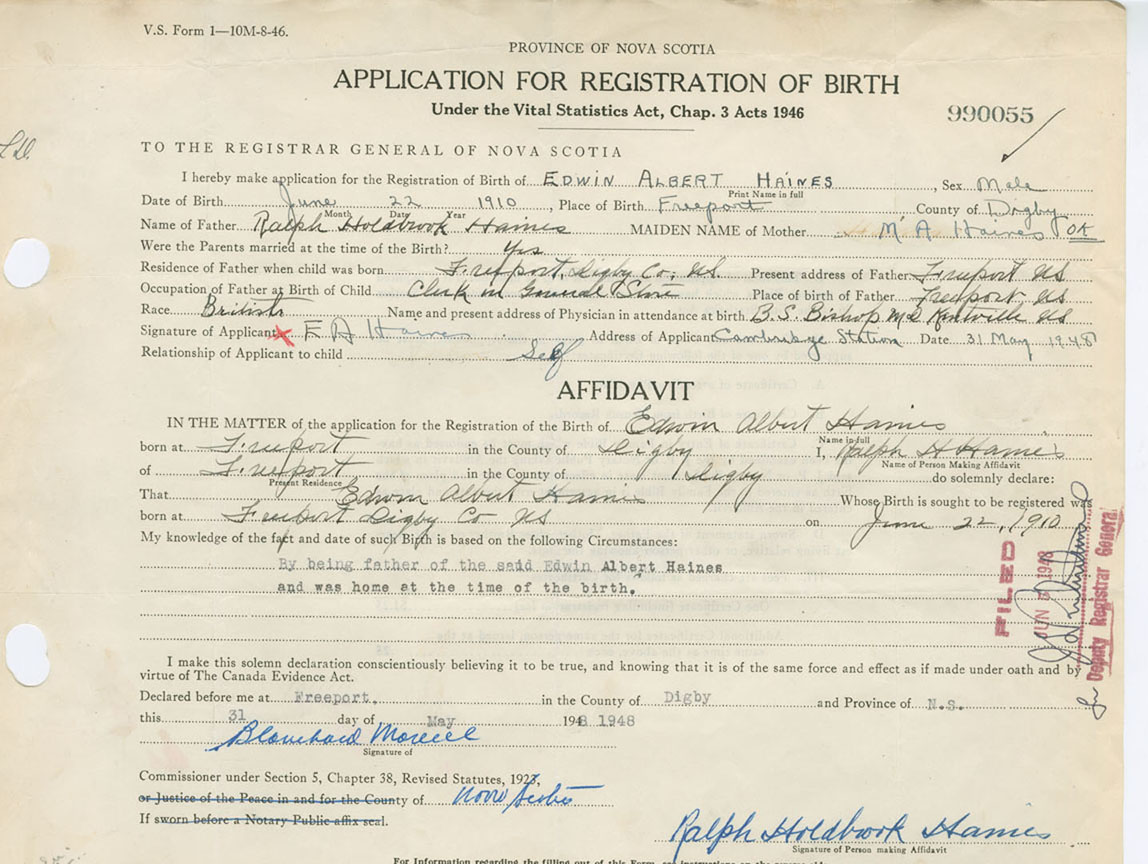 V.S. Form 1—10M-8-46.
PROVINCE OF NOVA SCOTIA
APPLICATION FOR REGISTRATION OF BIRTH
Under the Vital Statistics Act, Chap. 3 Acts 1946
990055
TO THE REGISTRAR GENERAL OF NOVA SCOTIA
I hereby make application for the Registration of Birth of EDWIN ALBERT HAINES, Sex Male
Print Name in full
Date of Birth June 22 1910, Place of Birth Freeport County of Digby
Month Date Year
Name of Father Ralph Holdbrook Haines MAIDEN NAME of Mother M A Haines OK
Were the Parents married at the time of the Birth? Yes
Residence of Father when child was born Freeport, Digby Co; NS. Present address of Father Freeport NS
Occupation of Father at Birth of Child Clerk in General Store Place of birth of Father Freeport, NS
Race British Name and present address of Physician in attendance at birth B.S. Bishop MD Kentville NS
Signature of Applicant x E A Haines Address of Applicant Cambridge Station Date 31 May 1948
Relationship of Applicant to child Self
AFFIDAVIT
IN THE MATTER of the application for the Registration of the Birth of Edwin Albert Haines
Name in full
born at Freeport in the County of Digby I, Ralph H Haines
Name of Person Making Affidavit
of Freeport in the County of Digby do solemnly declare:
Present Residence
That Edwin Albert Haines Whose Birth is sought to be registered was
born at Freeport Digby Co NS on June 22, 1910
My knowledge of the fact and date of such Birth is based on the following Circumstances:
By being father of the said Edwin Albert Haines
and was home at the time of the birth.
FILED
JUN 1948
for Deputy Registrar General
I make this solemn declaration conscientiously believing it to be true, and knowing that it is of the same force and effect as if made under oath and by
virtue of The Canada Evidence Act.
Declared before me at Freeport, in the County of Digby and Province of N.S.
this 31 day of May 1948 1948
Blanchard
Signature of
Commissioner under Section 5, Chapter 38, Revised Statutes, 1923,
or Justice of the Peace in and for the County of Nova Scotia
If sworn before a Notary Public affix seal.
Ralph Holdbrook Haines
Signature of Person making Affidavit